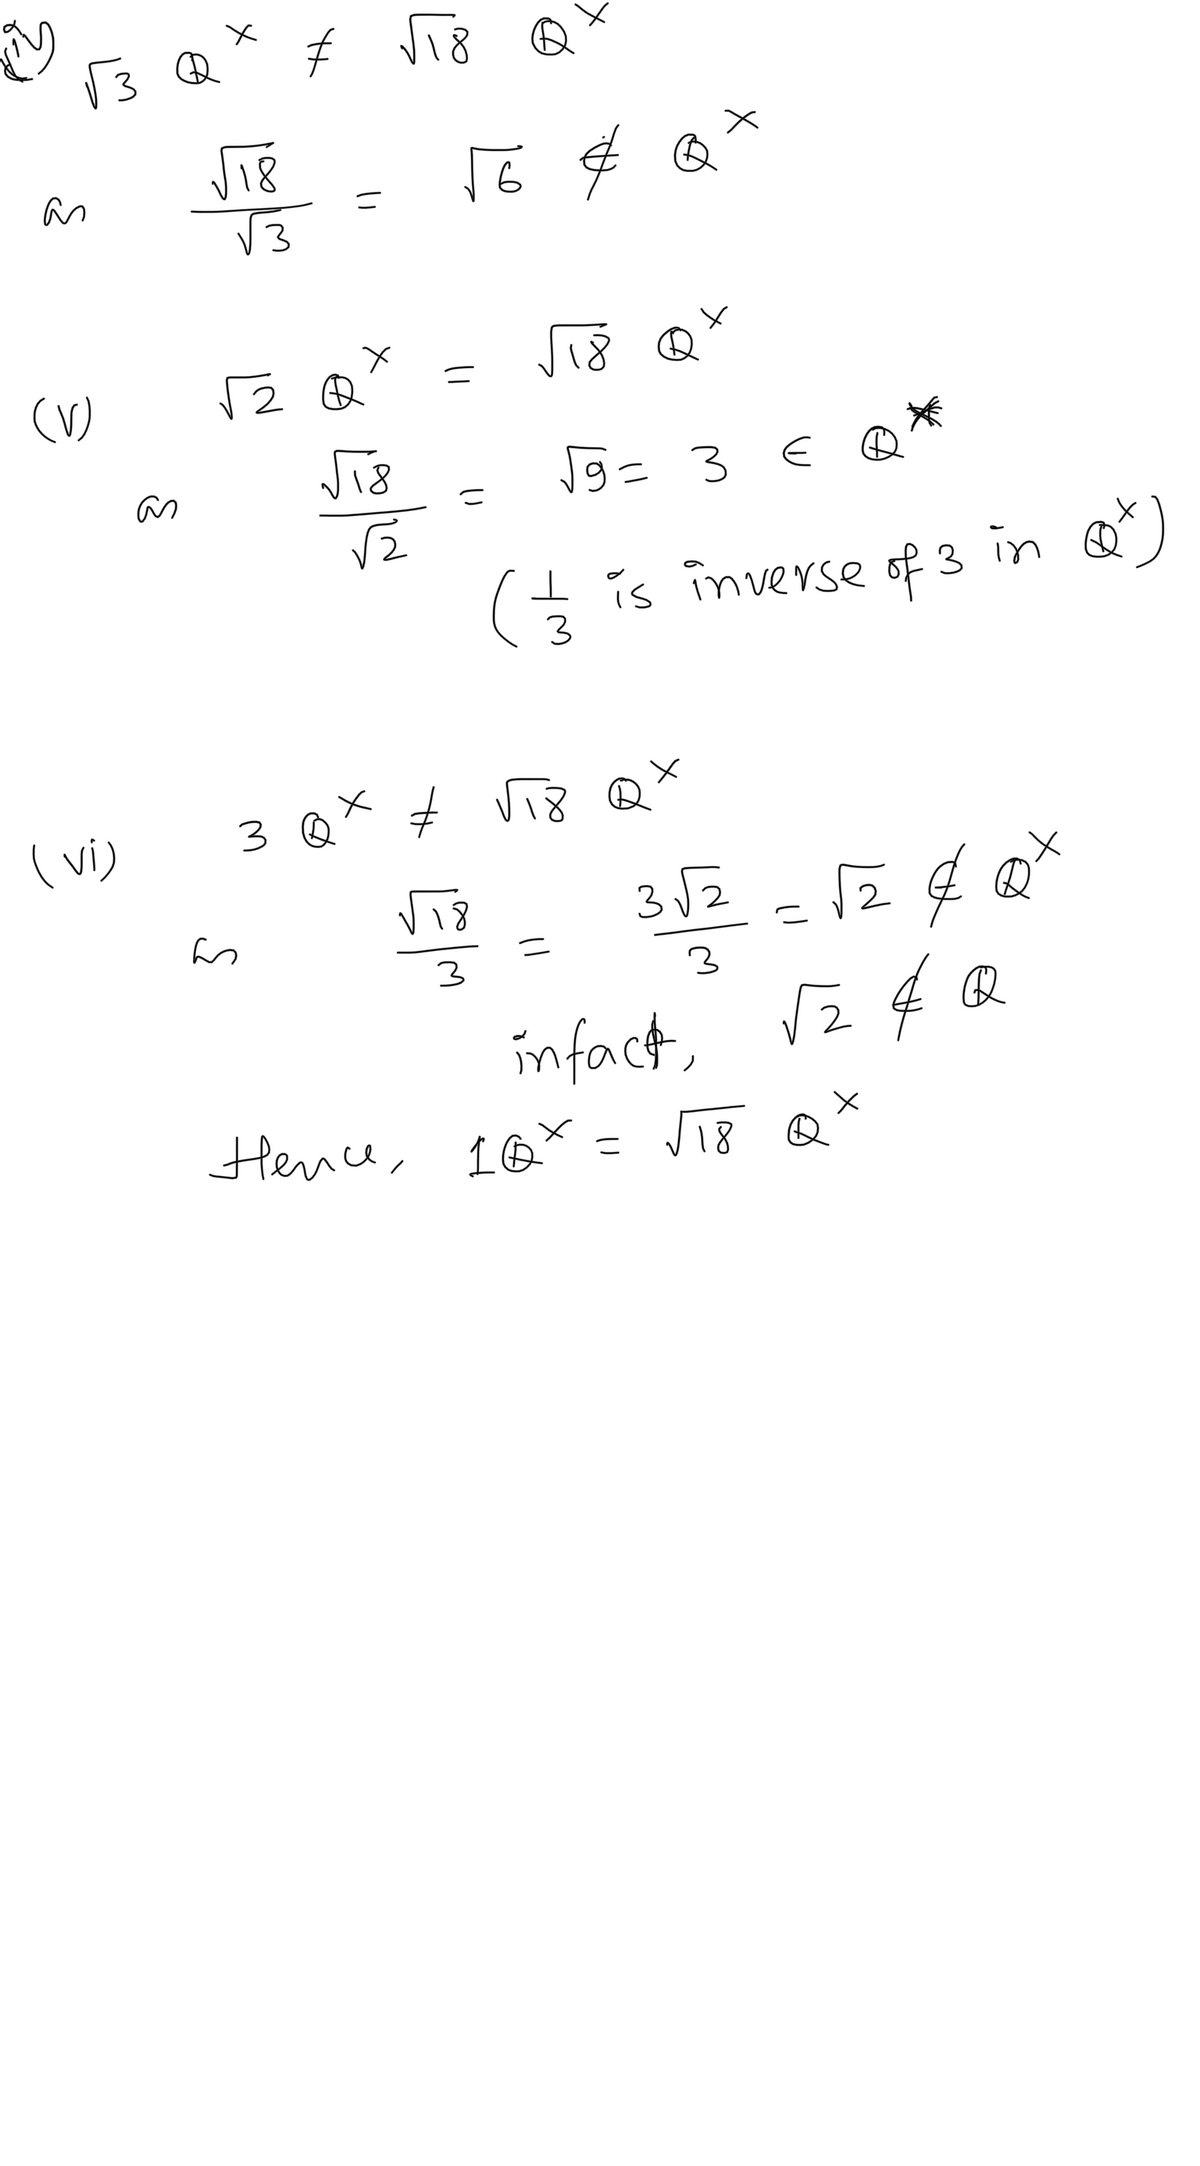 (iv) √3 ℚ^× ≠ √18 ℚ^×
as √18/√3 = √6 ∉ ℚ^×
(v) √2 ℚ^× = √18 ℚ^×
as √18/√2 = √9 = 3 ∈ ℚ^×
(1/3 is inverse of 3 in ℚ^×)
(vi) 3 ℚ^× ≠ √18 ℚ^×
as √18/3 = 3√2/3 = √2 ∉ ℚ^×
infact, √2 ∉ ℚ
Hence, 1ℚ^× = √18 ℚ^×